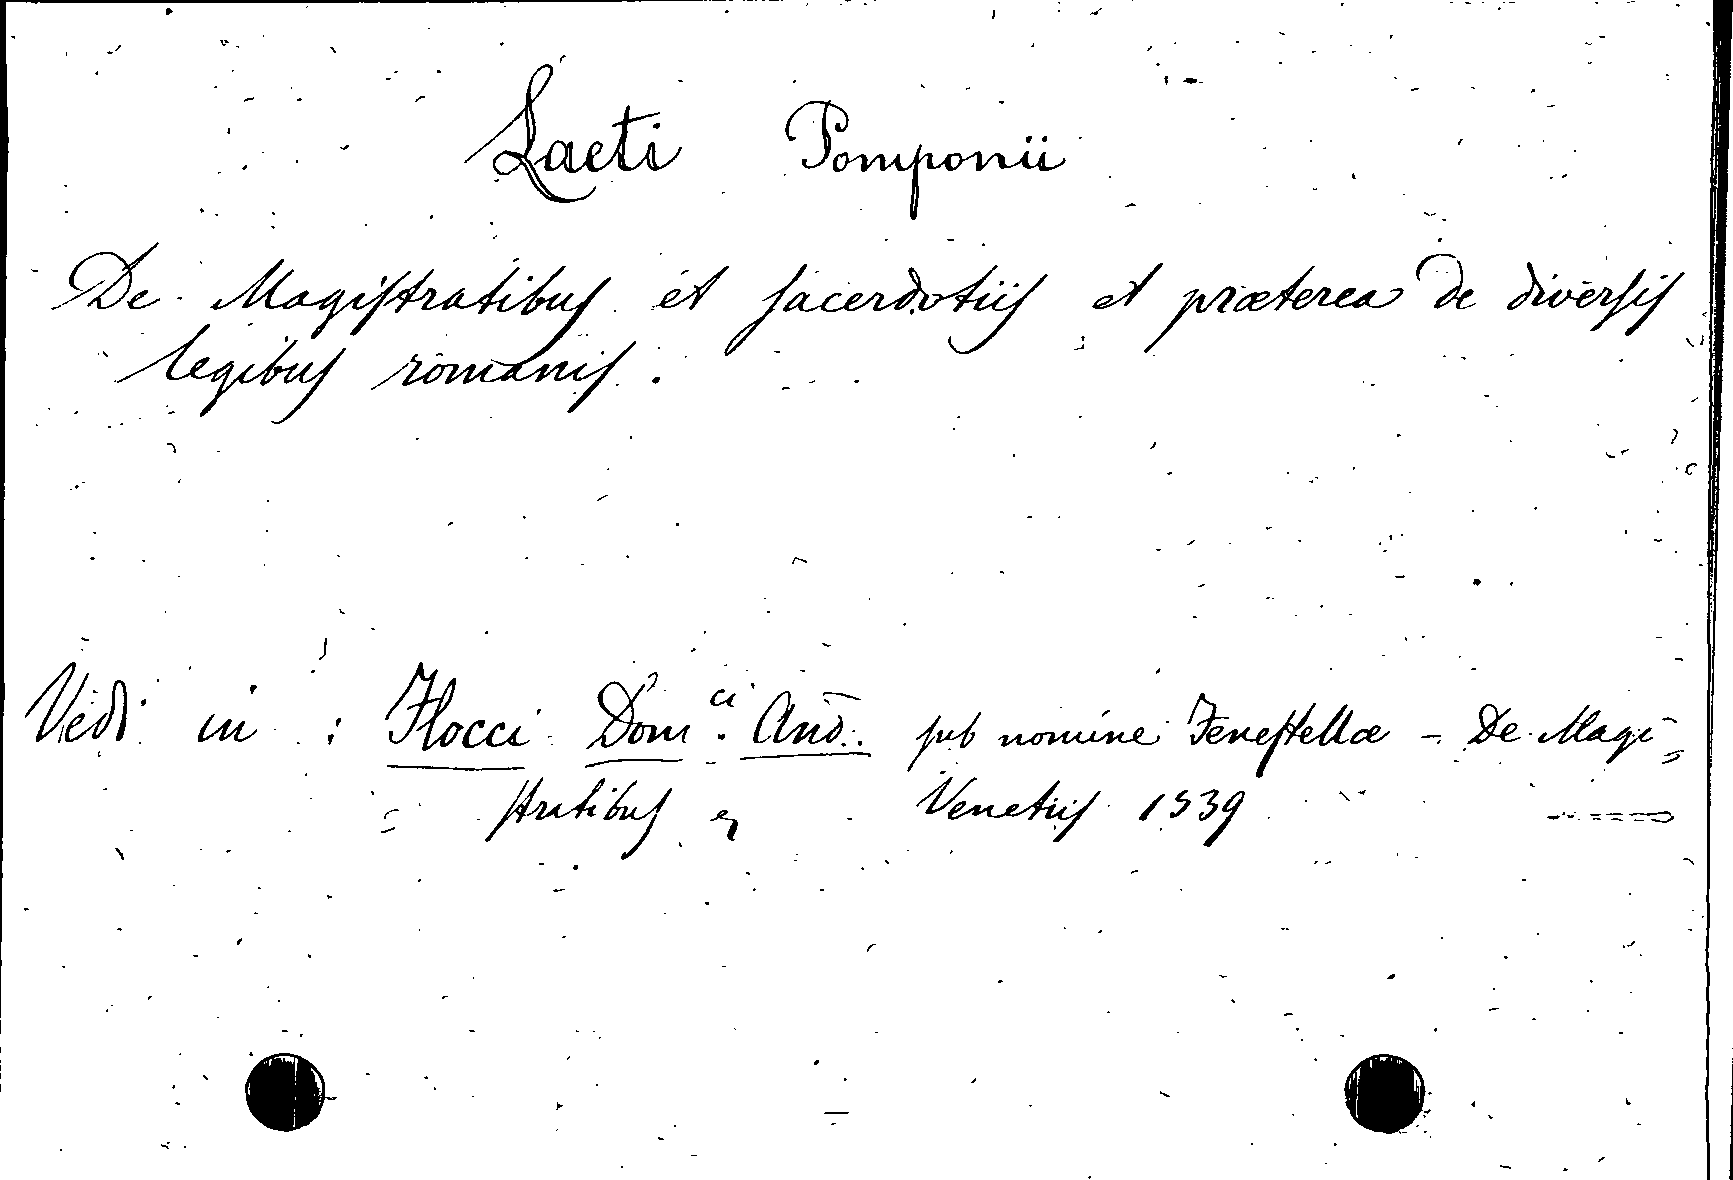 Laeti Pomponii
De Magiſtratibuſ et ſacerdotiiſ et præterea de diverſiſ
legibuſ romaniſ.
Vedi in : Flocci Dom.ci And. ſub nomine Feneſtellæ - De Magi=
= ſtratibuſ Venetiiſ 1539